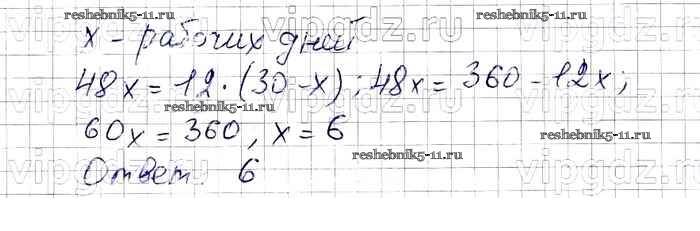 x - рабочих дней
48x = 12 · (30 - x); 48x = 360 - 12x;
60x = 360, x = 6
Ответ: 6
reshebnik5-11.ru
reshebnik5-11.ru
reshebnik5-11.ru
reshebnik5-11.ru
reshebnik5-11.ru
vipgdz.ru
vipgdz.ru
vipgdz.ru
vipgdz.ru